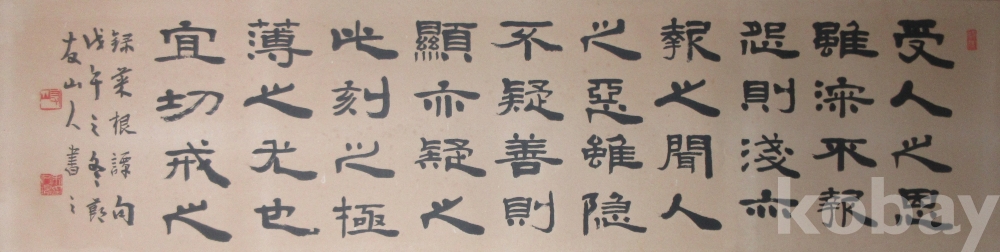 受人之恩
雖深不報
怨則淺亦
報之聞人
之惡雖隐
不疑善則
顯亦疑之
此刻之極
薄之尤也
宜切戒之
録菜根譚句
戊午之冬節
友山人書之
kobay